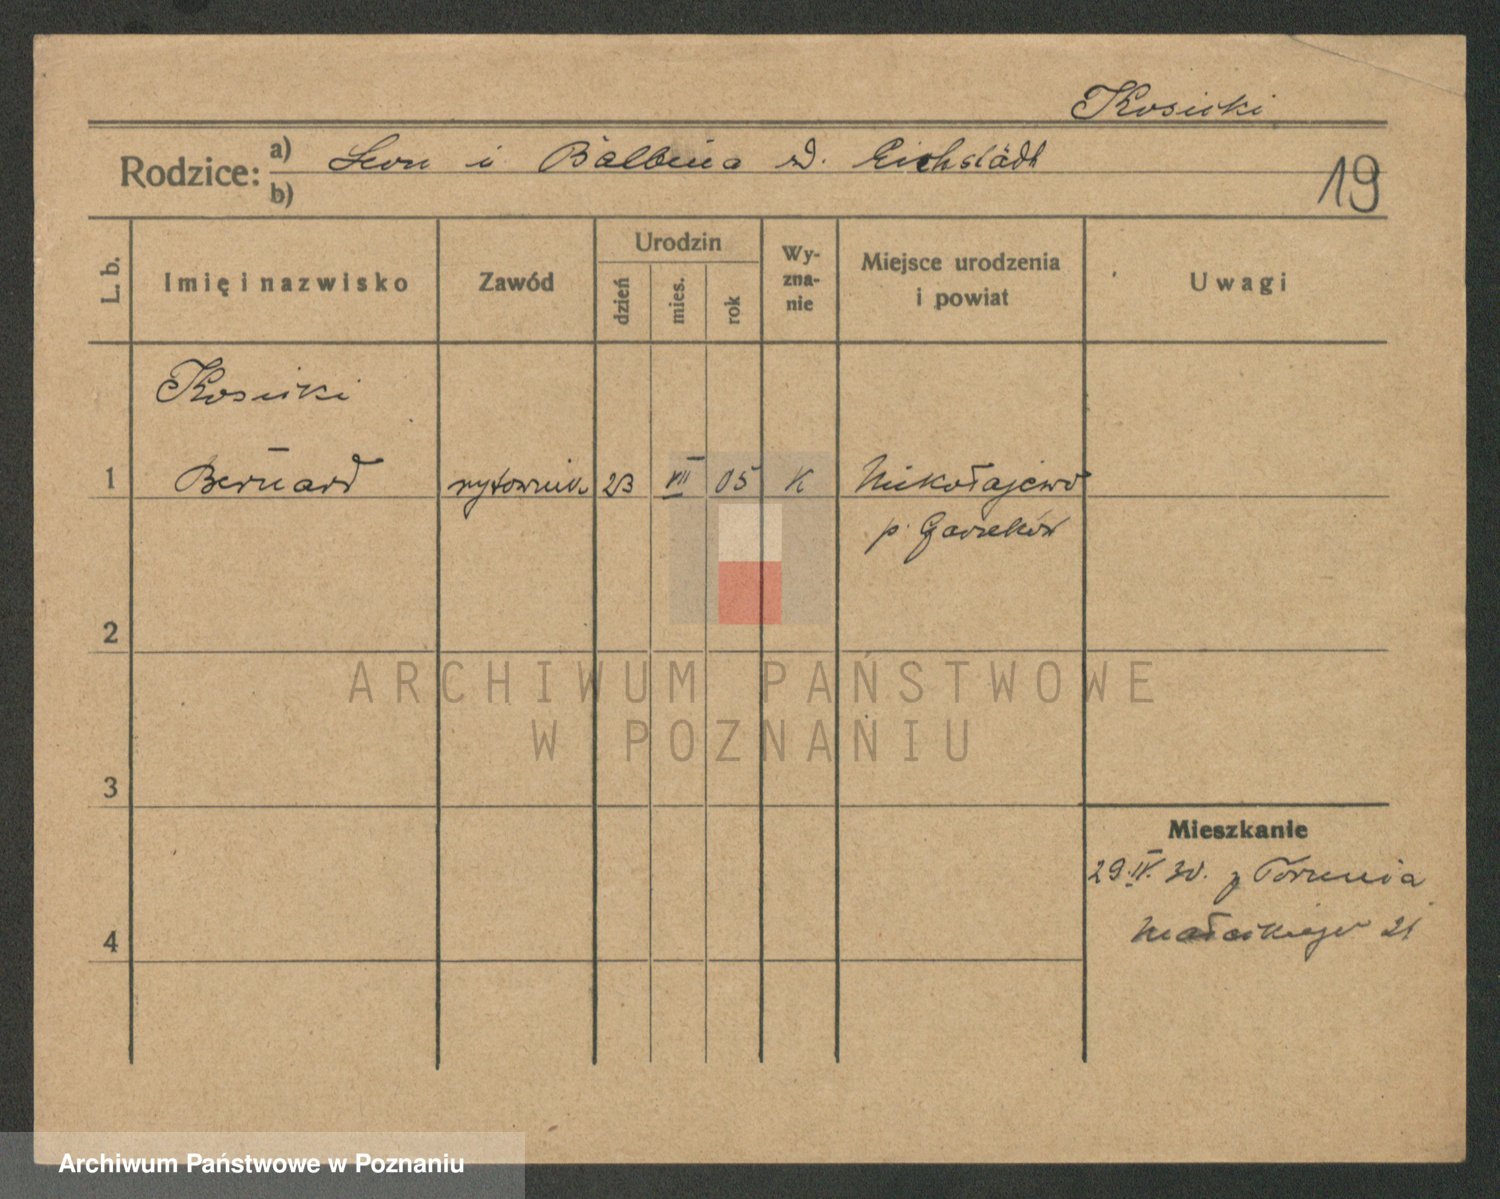 Kosicki
Rodzice: a) Leon i Balbina z d. Eichstädt
b)
19
L. b. Imię i nazwisko Zawód Urodzin dzień mies. rok Wy-zna-nie Miejsce urodzenia i powiat Uwagi
Kosicki
1 Bernard rytownik 23 VII 05 K Nikołajewo
p.
2
3
Mieszkanie
29.IV. 30. z Torunia
4 Małeckiego 21
ARCHIWUM PAŃSTWOWE
W POZNANIU
Archiwum Państwowe w Poznaniu